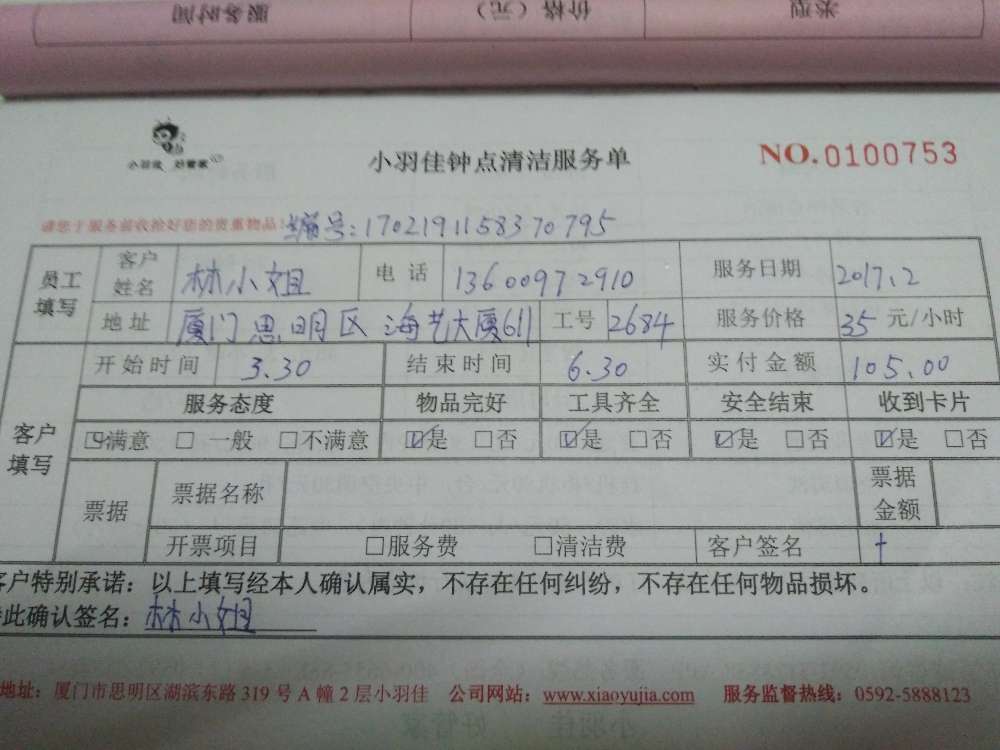 服务时间 价格（元） 类型
小羽佳 好管家
小羽佳钟点清洁服务单
NO.0100753
请您于服务前收拾好您的贵重物品! 编号:1702191158370795
员工填写 客户姓名 林小姐 电话 13600972910 服务日期 2017.2
地址 厦门思明区海艺大厦611 工号 2684 服务价格 35 元/小时
客户填写 开始时间 3.30 结束时间 6.30 实付金额 105.00
服务态度 物品完好 工具齐全 安全结束 收到卡片
☑满意 □ 一般 □不满意 ☑是 □否 ☑是 □否 ☑是 □否 ☑是 □否
票据 票据名称 票据金额
开票项目 □服务费 □清洁费 客户签名
客户特别承诺：以上填写经本人确认属实，不存在任何纠纷，不存在任何物品损坏。
特此确认签名：林小姐
地址：厦门市思明区湖滨东路 319 号 A 幢 2 层小羽佳 公司网站：www.xiaoyujia.com 服务监督热线：0592-5888123